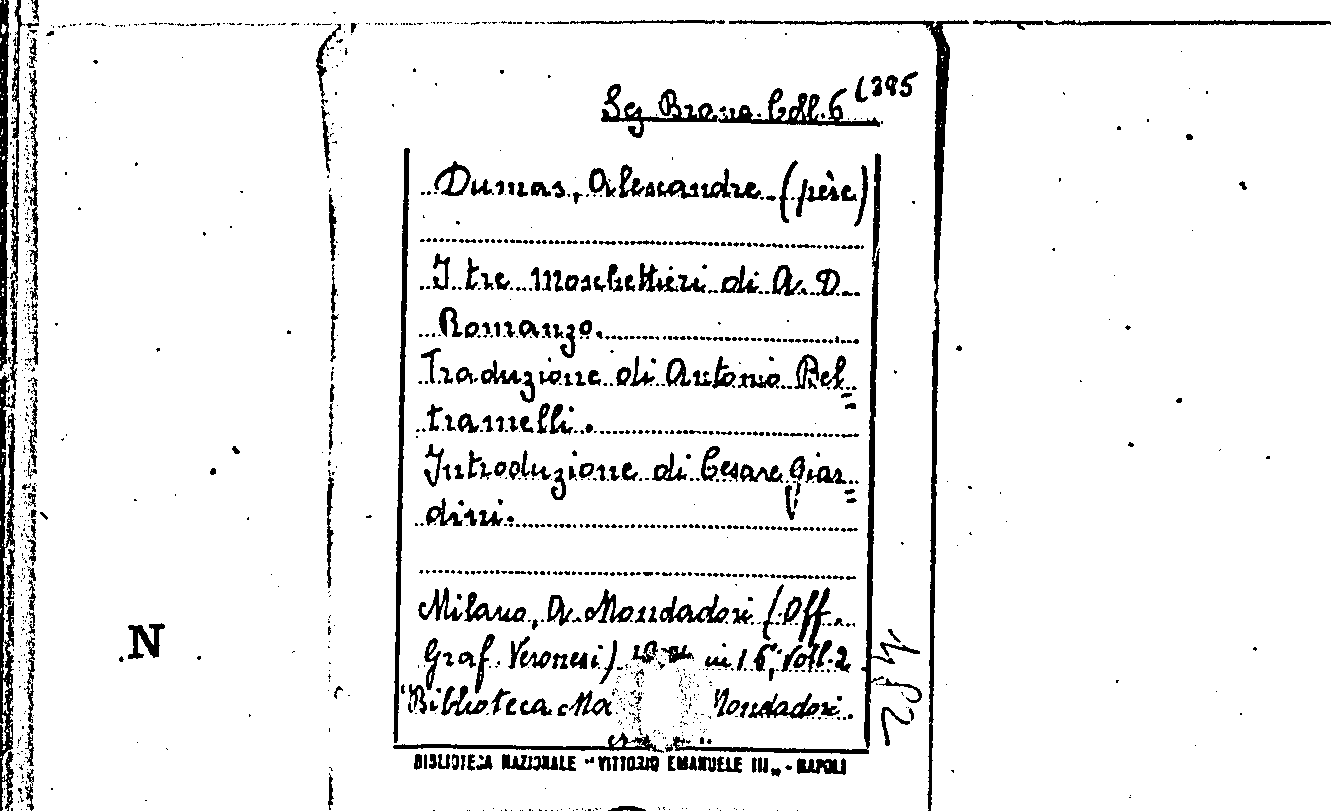 Sez Brava Coll. 6 (395
Dumas, Alessandre (père)
I tre Moschettieri di A. D.
Romanzo.
Traduzione di Antonio Bel=
tramelli.
Introduzione di Cesare Giar=
dini.
Milano, A. Mondadori (Off.
Graf. Veronesi) in 16°, Voll. 2
Biblioteca Mondadori.
N
BIBLIOTECA NAZIONALE "VITTORIO EMANUELE III„ - NAPOLI